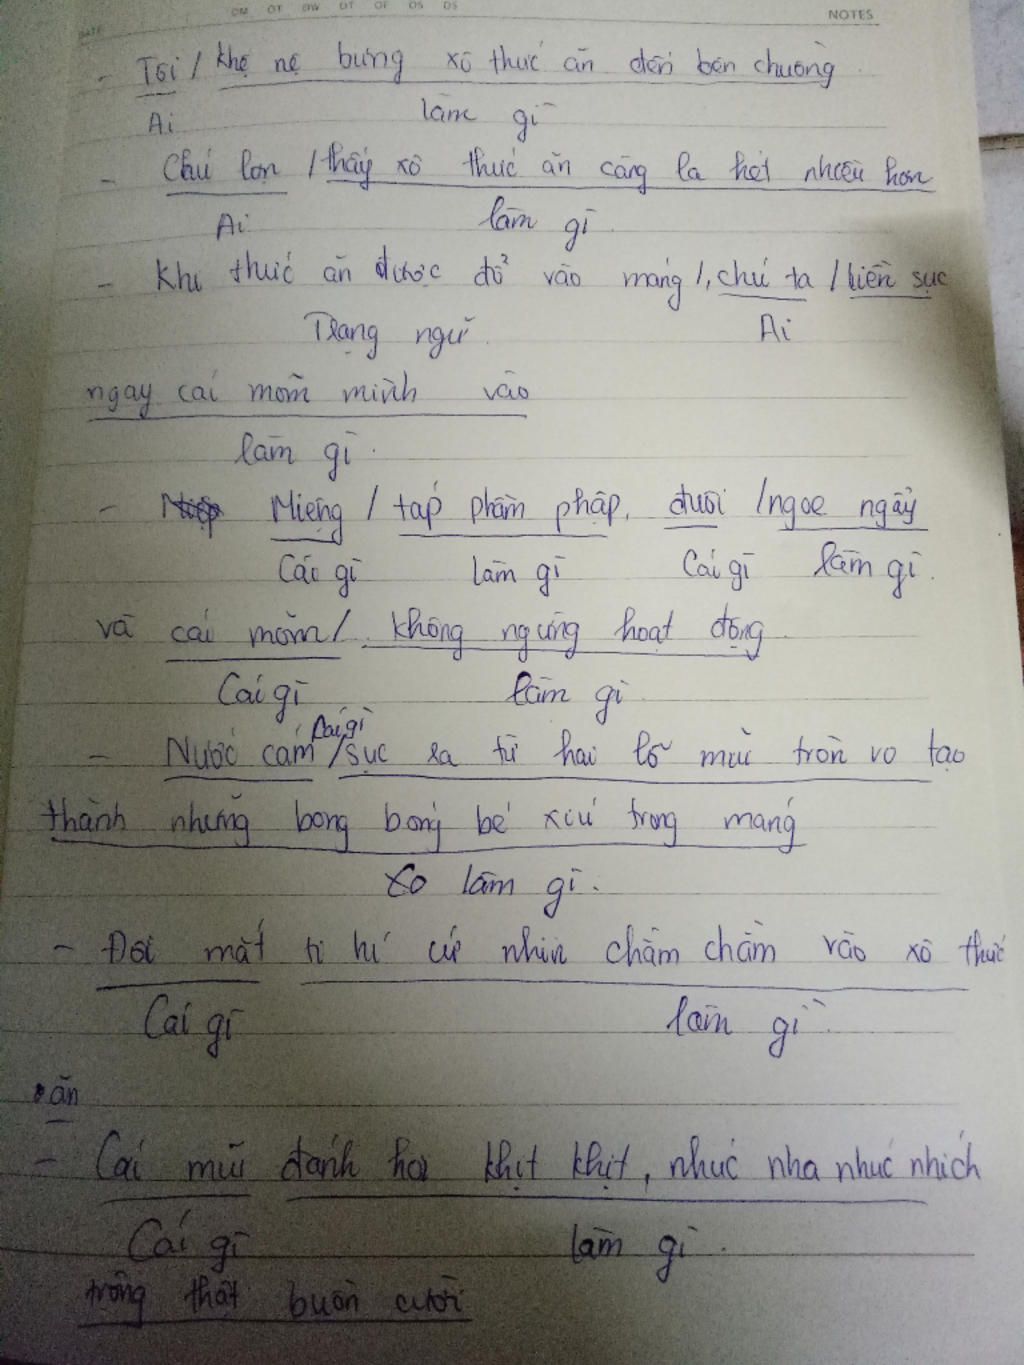 NOTES
- Tôi / khệ nệ bưng xô thức ăn đến bên chuồng.
Ai làm gì
- Chú lợn / thấy xô thức ăn càng la hét nhiều hơn
Ai làm gì
- Khi thức ăn được đổ vào máng /, chú ta / liền sục
Trạng ngữ. Ai
ngay cái mõm mình vào
làm gì.
- Miệng / táp phầm phập, đuôi / ngoe ngẩy
Cái gì làm gì Cái gì làm gì.
và cái mõm / không ngừng hoạt động.
Cái gì làm gì.
Cái gì
- Nước cám / sục ra từ hai lỗ mũi tròn vo tạo
thành những bong bóng bé xíu trong máng
làm gì.
- Đôi mắt ti hí cứ nhìn chằm chằm vào xô thức
Cái gì làm gì.
ăn
- Cái mũi đánh hơi khịt khịt, nhúc nha nhúc nhích
Cái gì làm gì.
trông thật buồn cười